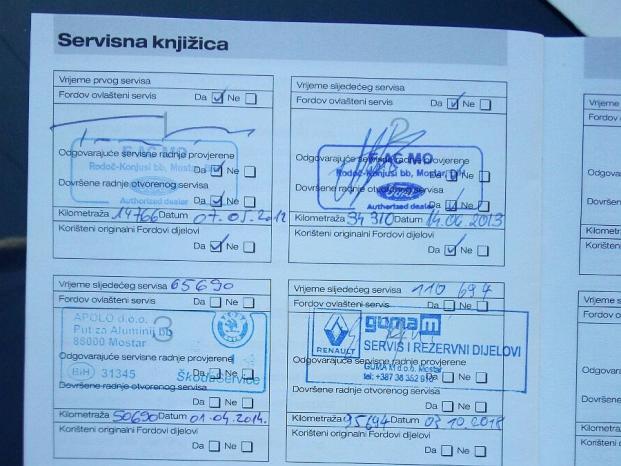 Servisna knjižica
Vrijeme prvog servisa
Fordov ovlašteni servis Da Ne
Odgovarajuće servisne radnje provjerene
Rodoč-Konjusi bb, Mostar
Da Ne
Dovršene radnje otvorenog servisa
Authorized dealer
Da Ne
Kilometraža 14766 Datum 07.05.2012
Korišteni originalni Fordovi dijelovi
Da Ne
Vrijeme slijedećeg servisa
Fordov ovlašteni servis Da Ne
2
Odgovarajuće servisne radnje provjerene
Rodoč-Konjusi bb, Mostar
Da Ne
Dovršene radnje otvorenog servisa
Authorized dealer
Da Ne
Kilometraža 34310 Datum 14.06.2013
Korišteni originalni Fordovi dijelovi
Da Ne
Vrijeme slijedećeg servisa 65690
Fordov ovlašteni servis Da Ne
APOLO d.o.o.
Put za Aluminij bb
88000 Mostar
3
Odgovarajuće servisne radnje provjerene
BiH 31345 ŠkodaService
Da Ne
Dovršene radnje otvorenog servisa
Da Ne
Kilometraža 50690 Datum 01.04.2014.
Korišteni originalni Fordovi dijelovi
Da Ne
Vrijeme slijedećeg servisa 110 694
Fordov ovlašteni servis Da Ne
RENAULT guma m
SERVIS I REZERVNI DIJELOVI
Odgovarajuće servisne radnje provjerene
GUMA M d.o.o. Mostar
Da Ne
Dovršene radnje otvorenog servisa
Da Ne
Kilometraža 95694 Datum 03.10.2018
Korišteni originalni Fordovi dijelovi
Da Ne
Vrijeme
Fordov
Odgova
Dovršen
Kilometra
Korišteni
Vrijeme s
Fordov o
Odgova
Dovrše
Kilometra
Korišten